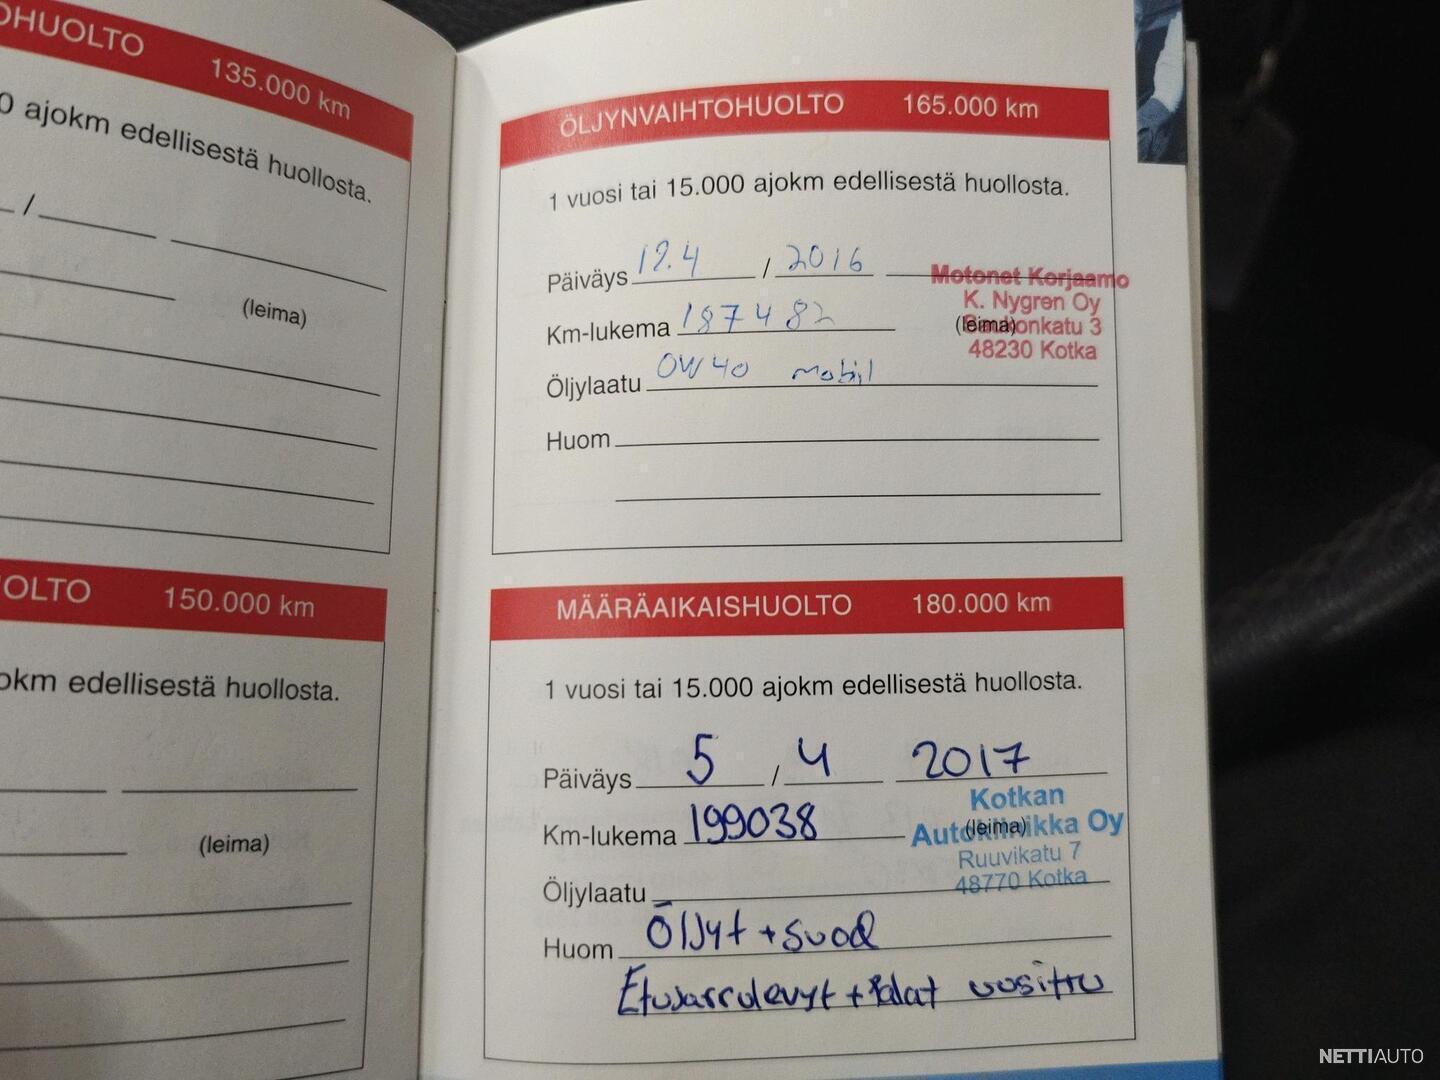 OHUOLTO 135.000 km
0 ajokm edellisestä huollosta.
/
(leima)
OLTO 150.000 km
okm edellisestä huollosta.
(leima)
ÖLJYNVAIHTOHUOLTO 165.000 km
1 vuosi tai 15.000 ajokm edellisestä huollosta.
Päiväys 12.4 / 2016
Motonet Korjaamo
K. Nygren Oy
Km-lukema 187482 (leima)
3
48230 Kotka
Öljylaatu 0W40 mobil
Huom
MÄÄRÄAIKAISHUOLTO 180.000 km
1 vuosi tai 15.000 ajokm edellisestä huollosta.
Päiväys 5 / 4 2017
Kotkan
Km-lukema 199038 (leima)
Autoklinikka Oy
Ruuvikatu 7
48770 Kotka
Öljylaatu
Huom Öljyt + suod
Etujarrulevyt + Palat uusittu
NETTIAUTO